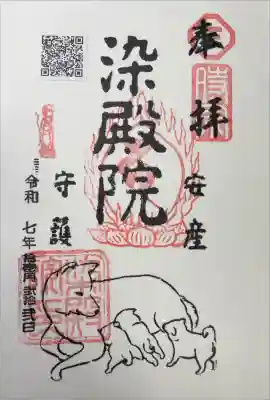 奉拝 安産
染殿院
守護
令和 七年